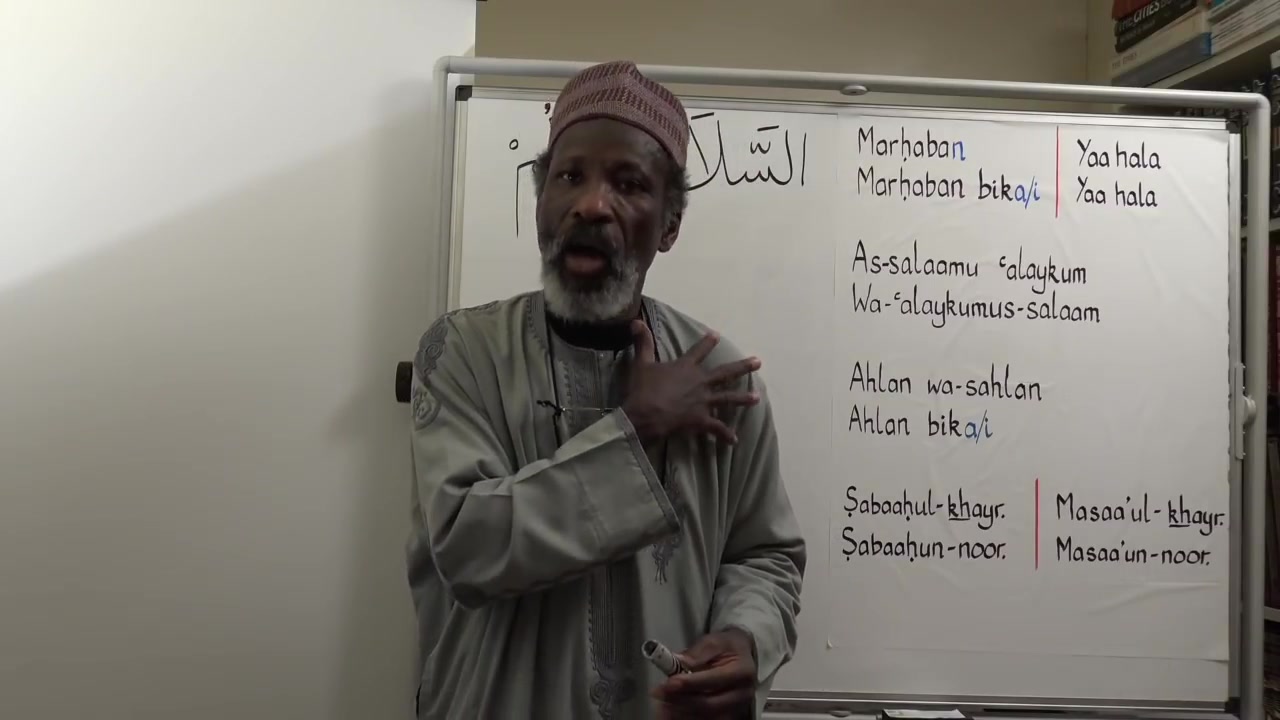 السَّلاَ
Marḥaban
Marḥaban bika/i
Yaa hala
Yaa hala
As-salaamu ʿalaykum
Wa-ʿalaykumus-salaam
Ahlan wa-sahlan
Ahlan bika/i
Ṣabaaḥul-khayr.
Ṣabaaḥun-noor.
Masaa'ul-khayr.
Masaa'un-noor.